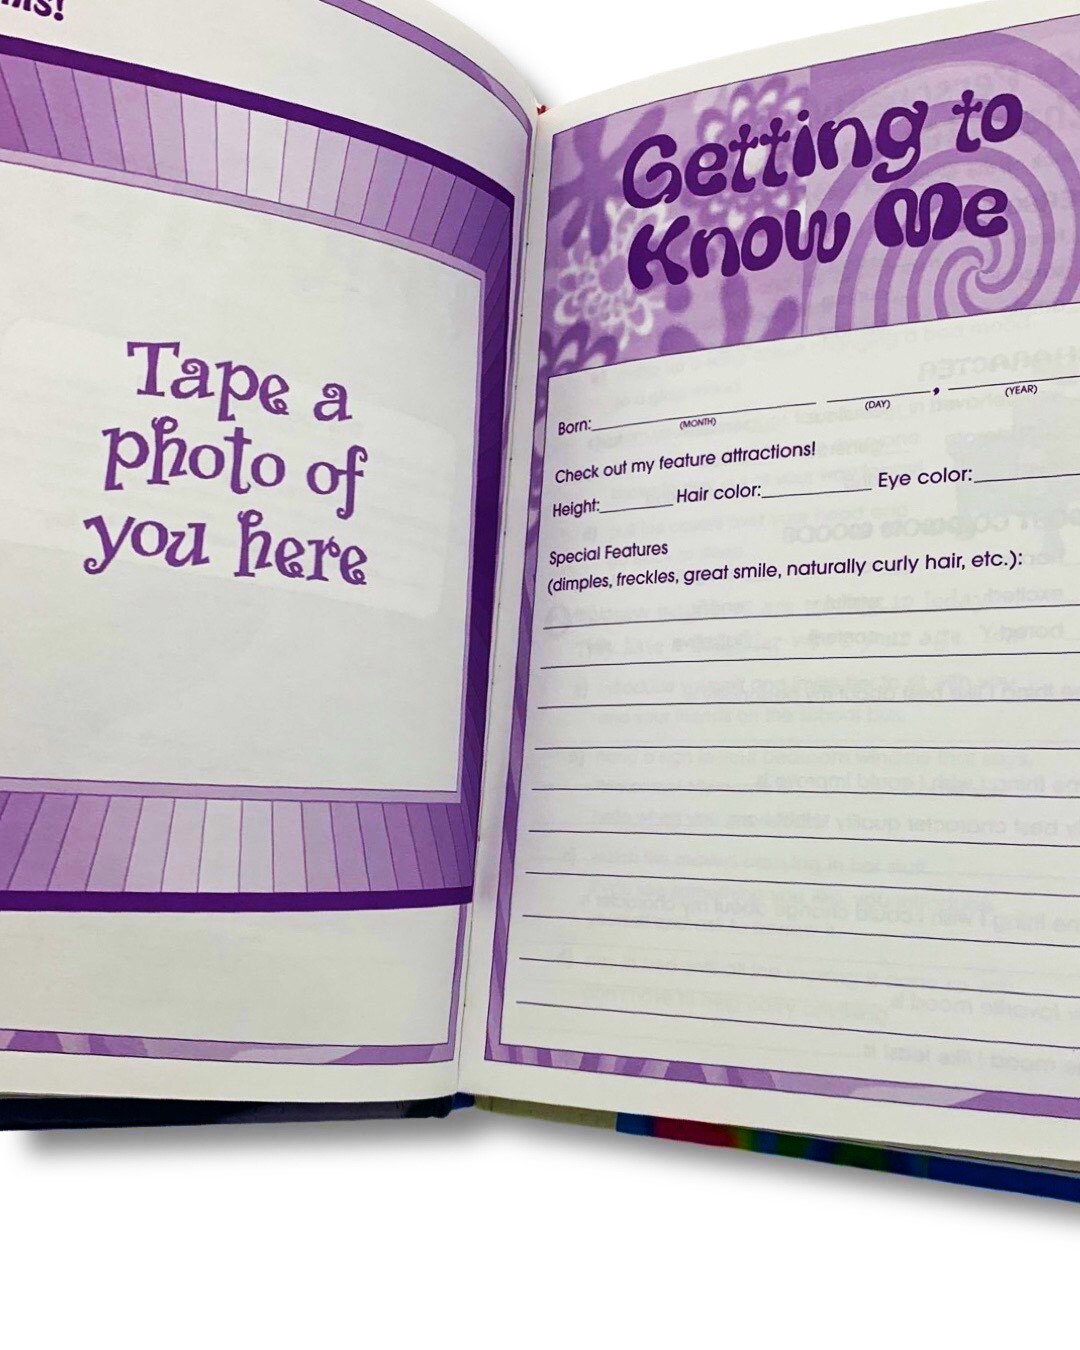 Tape a
photo of
you here
Getting to
Know Me
Born:
(MONTH)
(DAY)
,
(YEAR)
Check out my feature attractions!
Height: Hair color: Eye color:
Special Features
(dimples, freckles, great smile, naturally curly hair, etc.):